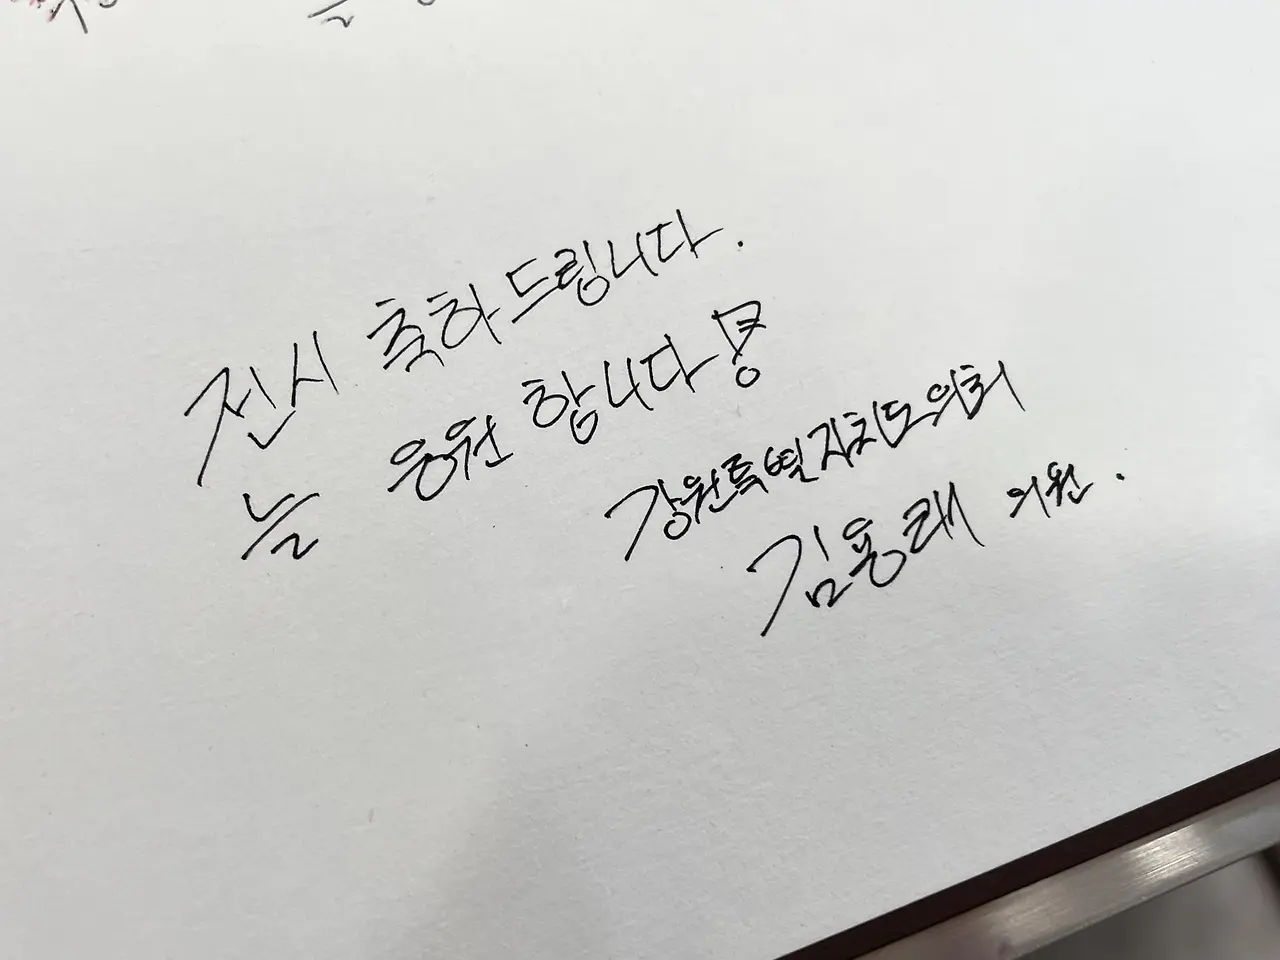 전시 축하드립니다.
늘 응원 합니다!
강원특별자치도의회
김용래 의원.